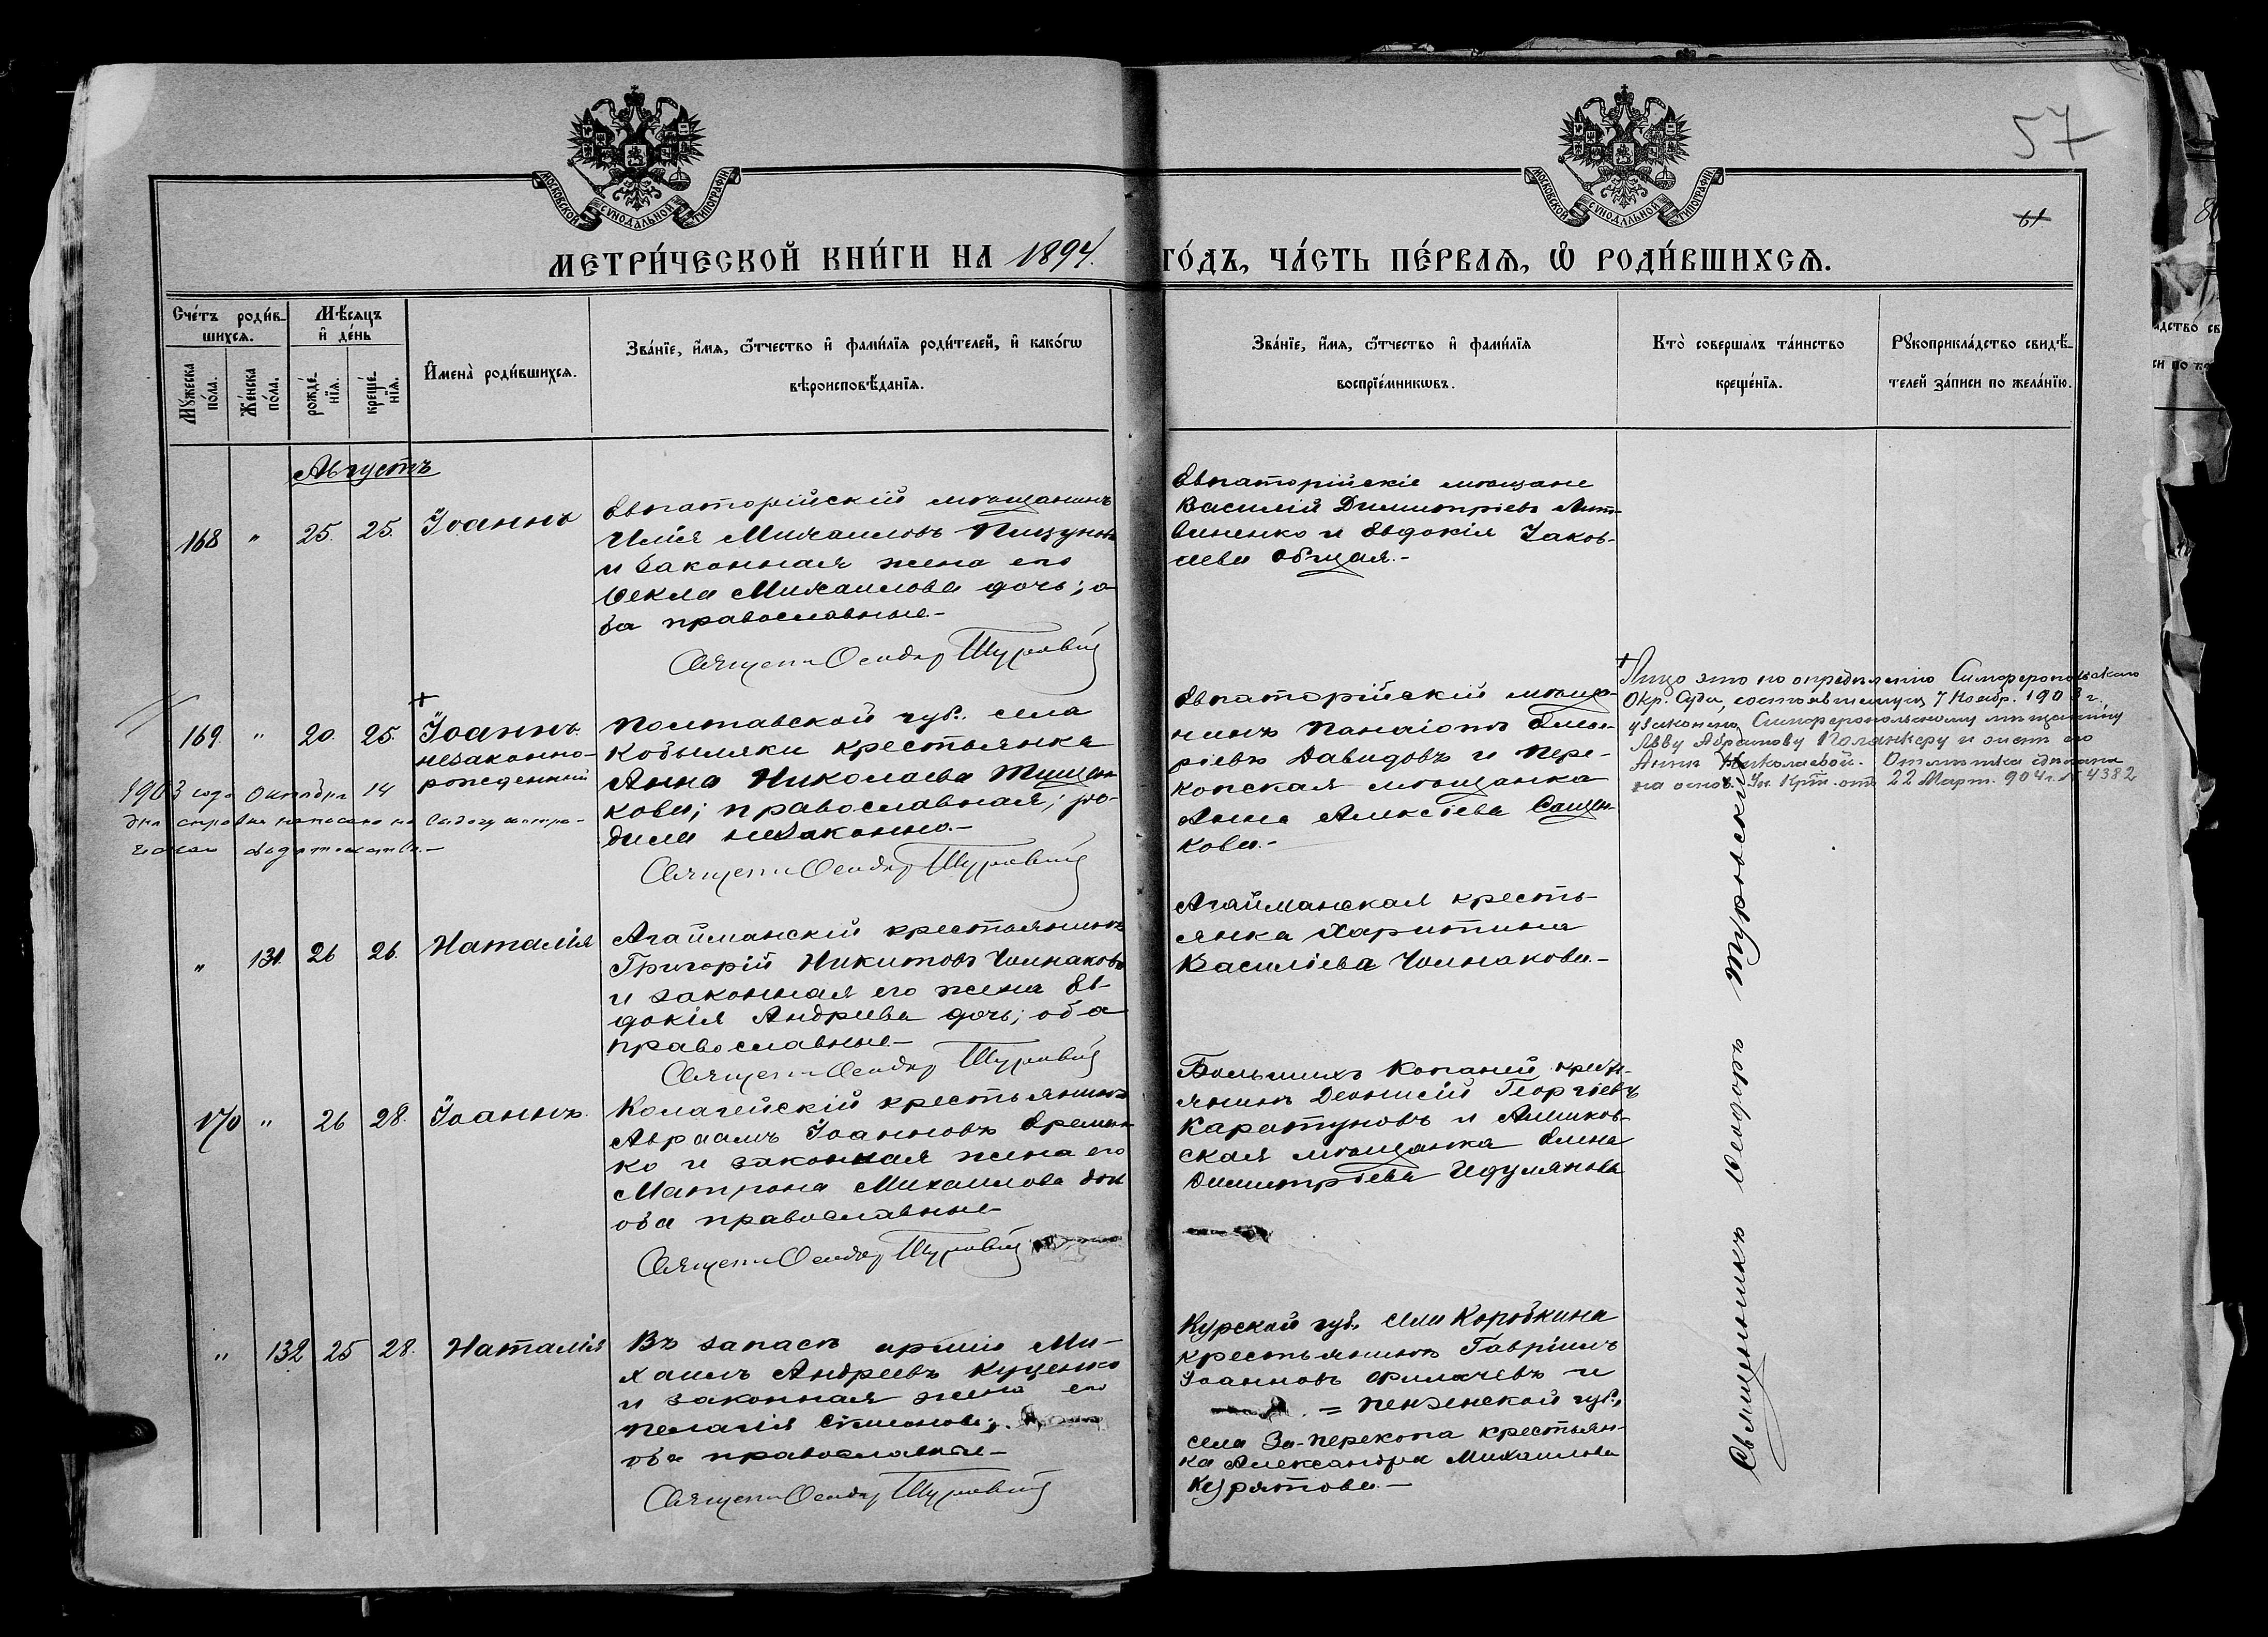 57
61
МОСКОВСКОЙ СѴНОДАЛЬНОЙ ТИПОГРАФІИ
МОСКОВСКОЙ СѴНОДАЛЬНОЙ ТИПОГРАФІИ
МЕТРИ́ЧЕСКОЙ КНИ́ГИ НА 1894 ГО́ДЪ, ЧА́СТЬ ПЕ́РВАЯ, Ѡ РОДИ́ВШИХСЯ.
Сче́тъ роди́в-
шихся.
Мѣ́сяцъ
и де́нь
Му́жеска по́ла.
Же́нска по́ла.
рожде́-нїя.
креще́-нїя.
И҆мена̀ роди́вшихся.
Зва́нїе, и҆́мя, ѻ҆́тчество и҆ фами́лїя роди́телей, и҆ како́гѡ
вѣроисповѣ́данїя.
Зва́нїе, и҆́мя, ѻ҆́тчество и҆ фами́лїя
воспрїе́мникѡвъ.
Кто̀ соверша́лъ та́инство
креще́нїя.
Рꙋкоприкла́дство свидѣ́-
телей за́писи по жела́нїю.
Августъ
168 " 25. 25. Іоаннъ
Евпаторійскій мѣщанинъ
Илія Михаиловъ Пищуновъ
и законная жена его
Ѳекла Михаилова дочь; о-
ба православные.-
Священ Ѳеодор Туровскій
Евпаторійскіе мѣщане
Василій Димитріевъ Лит-
виненко и Евдокія Іаков-
лева Общая.-
169. " 20. 25. Іоаннъ
незаконно-
рожденный
Полтавской губ. села
Кобыляки крестьянка
Анна Николаева Тищен
кова; православная; ро-
дила незаконно.-
Священ Ѳеодор Туровскій
Евпаторійскій мѣща-
нинъ Панаіотъ
Давидовъ и Пере-
копская мѣщанка
Анна Алексѣева
кова.-
Лицо это по опредѣленію Симферопольскаго
Окр. Суда, состоявшемуся 7 Ноябр. 1903 г.,
узаконено Симферопольскому мѣщанину
Льву Абрамову и женѣ его
Аннѣ Николаевой. Отмѣтка сдѣлана
на основ. Ук. отъ 22 Март. 904 г. № 4382
1903 года Октября 14
дня справка написана на
" 131. 26 26. Наталія
Агайманскій крестьянинъ
Григорій Никитовъ Чолнаковъ
и законная его жена Ев-
докія Андреева дочь; оба
православные-
Священ Ѳеодор Туровскій
Агайманская кресть-
янка Харитина
Василіева Чолнакова-
170 " 26 28. Іоаннъ.
Колагейскій крестьянинъ
Авраамъ Іоанновъ Еремен
ко и законная жена его
Матрона Михаилова доч
оба православные-
Священ Ѳеодор Туровскій
Большихъ Копаней крест-
янинъ Деонисій Георгіевъ
Каратуновъ и Алешков-
ская мѣщанка Елена
Димитріева
" 132 25 28. Наталія
Въ запасѣ арміи Ми-
хаилъ Андреевъ Куценко
и законная жена его
Пелагія Симонова;
оба православные-
Священ Ѳеодор Туровскій
Курской губ. села Коробкина
крестьянинъ Гавріилъ
Іоанновъ Филачевъ и
= Пензенской губ.,
села За-перекопа крестьян-
ка Александра Михаилова
Курятова.-
Священникъ Ѳеодоръ Туровскій